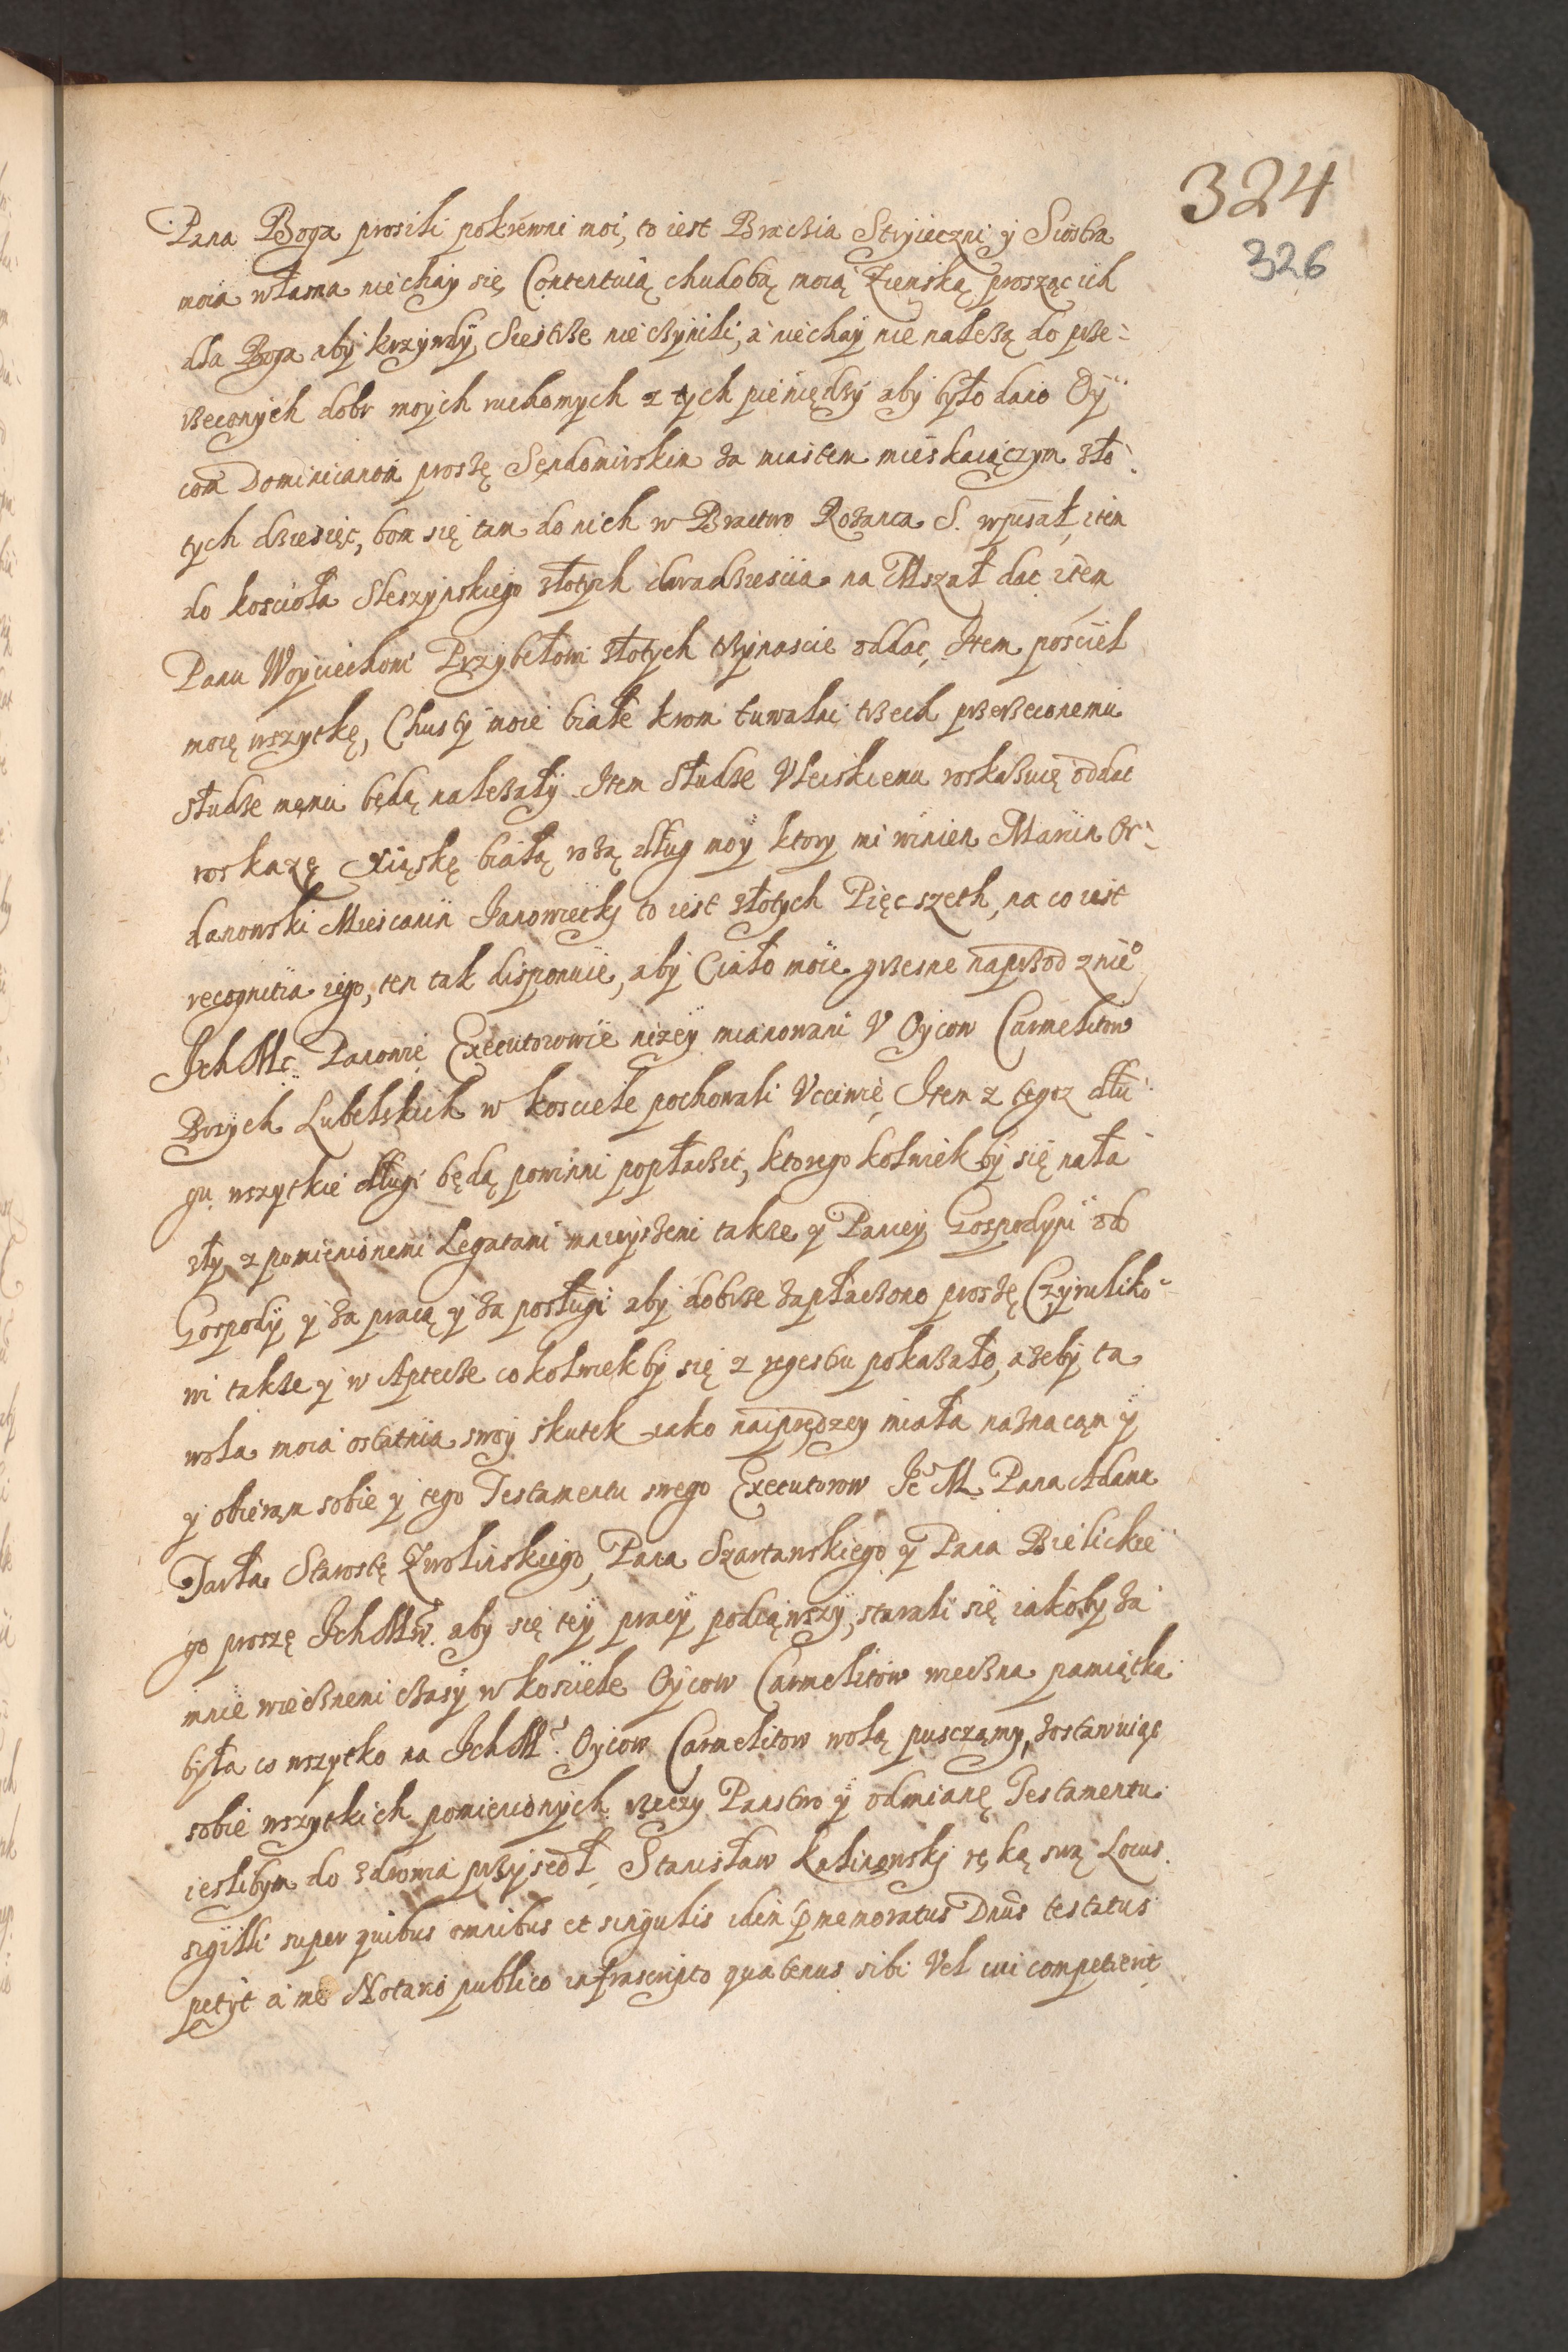 324
326
Pana Boga prosili pokrewni moi, to iest Bracżia Stryieczni y Siostra
moia własna niechay się Contentuią chudobą moią Ziemską prosząc ich
dla Boga aby krzywdy Siestrze nie cżynili, a niechay nie należą do prze-
rzeconych dobr moych ruchomych z tych pieniędzy aby było dano Oy
com Dominicanom proszę Sędomirskim za miastem mieskaiączym zło
tych dziesięc, bom się tam do nich w Bractwo Rożanca S. wpisał, item
do koscioła Sleszynskiego złotych dwadziescia na Mszał dac item
Panu Woyciechowi Przybełowi złotych trzynascie oddac, Item posciel
moię wszytkę, Chusty moie białe krom tuwalni trzech przerzeconemu
słudze memu będą należały Item słudze Vleiskiemu roskazuię oddac
roskazę Xiąskę białą rożą dług moy ktory mi winien Marcin Or-
danowski Miescanin Janowiecky to iest złotych Pięc szeth, na co iest
recognitia iego, ten tak disponuie, aby Ciało moie grzesne naprzod z nie°
Ich Mc. Panowie Executorowie niżey mianowani V Oycow Carmelitow
Bosych Lubelskich w kosciele pochowali Vcciwie, Item z tegoz dłu
gu wszytkie długi będą powinni popłacżic, ktorego kolwiek by się nała
zły z pomienionemi Legatami mnieyszemi takze y Paniey Gospodyni od
Gospody y za pracą y za posługi aby dobrze zapłaczono proszę, Czyruliko-
wi takze y w Aptecże cokolwiek by się z regestru pokazało, azeby ta
wola moia ostatnia swoy skutek iako naiprędzey miała naznacam y
y obieram sobie y tego Testamentu swego Executorow Ie° M. Pana Adama
Tarła Starostę Zwolinskiego, Pana Szartawskiego y Pana Bielickie
go proszę Ich Mw. aby się tey pracy podiąwszy, starali się iakoby za
mnie wiecznemi cżasy w kosciele Oycow Carmelitow wieczna pamiątka
była co wszytko na Ich M. Oycow Carmelitow wolą pusczamy, zostawuiąc
sobie wszytkich pomienionych rzeczy Panstwo y odmianę Testamentu
ieslibym do zdrowia przysedł, Stanisław Kalinowskj ręką swą Locus
sigilli super quibus omnibus et singulis idem pmemoratus Dnus testatus
petyt a me Notario publico infrascripto quatenus sibi Vel cui competierit